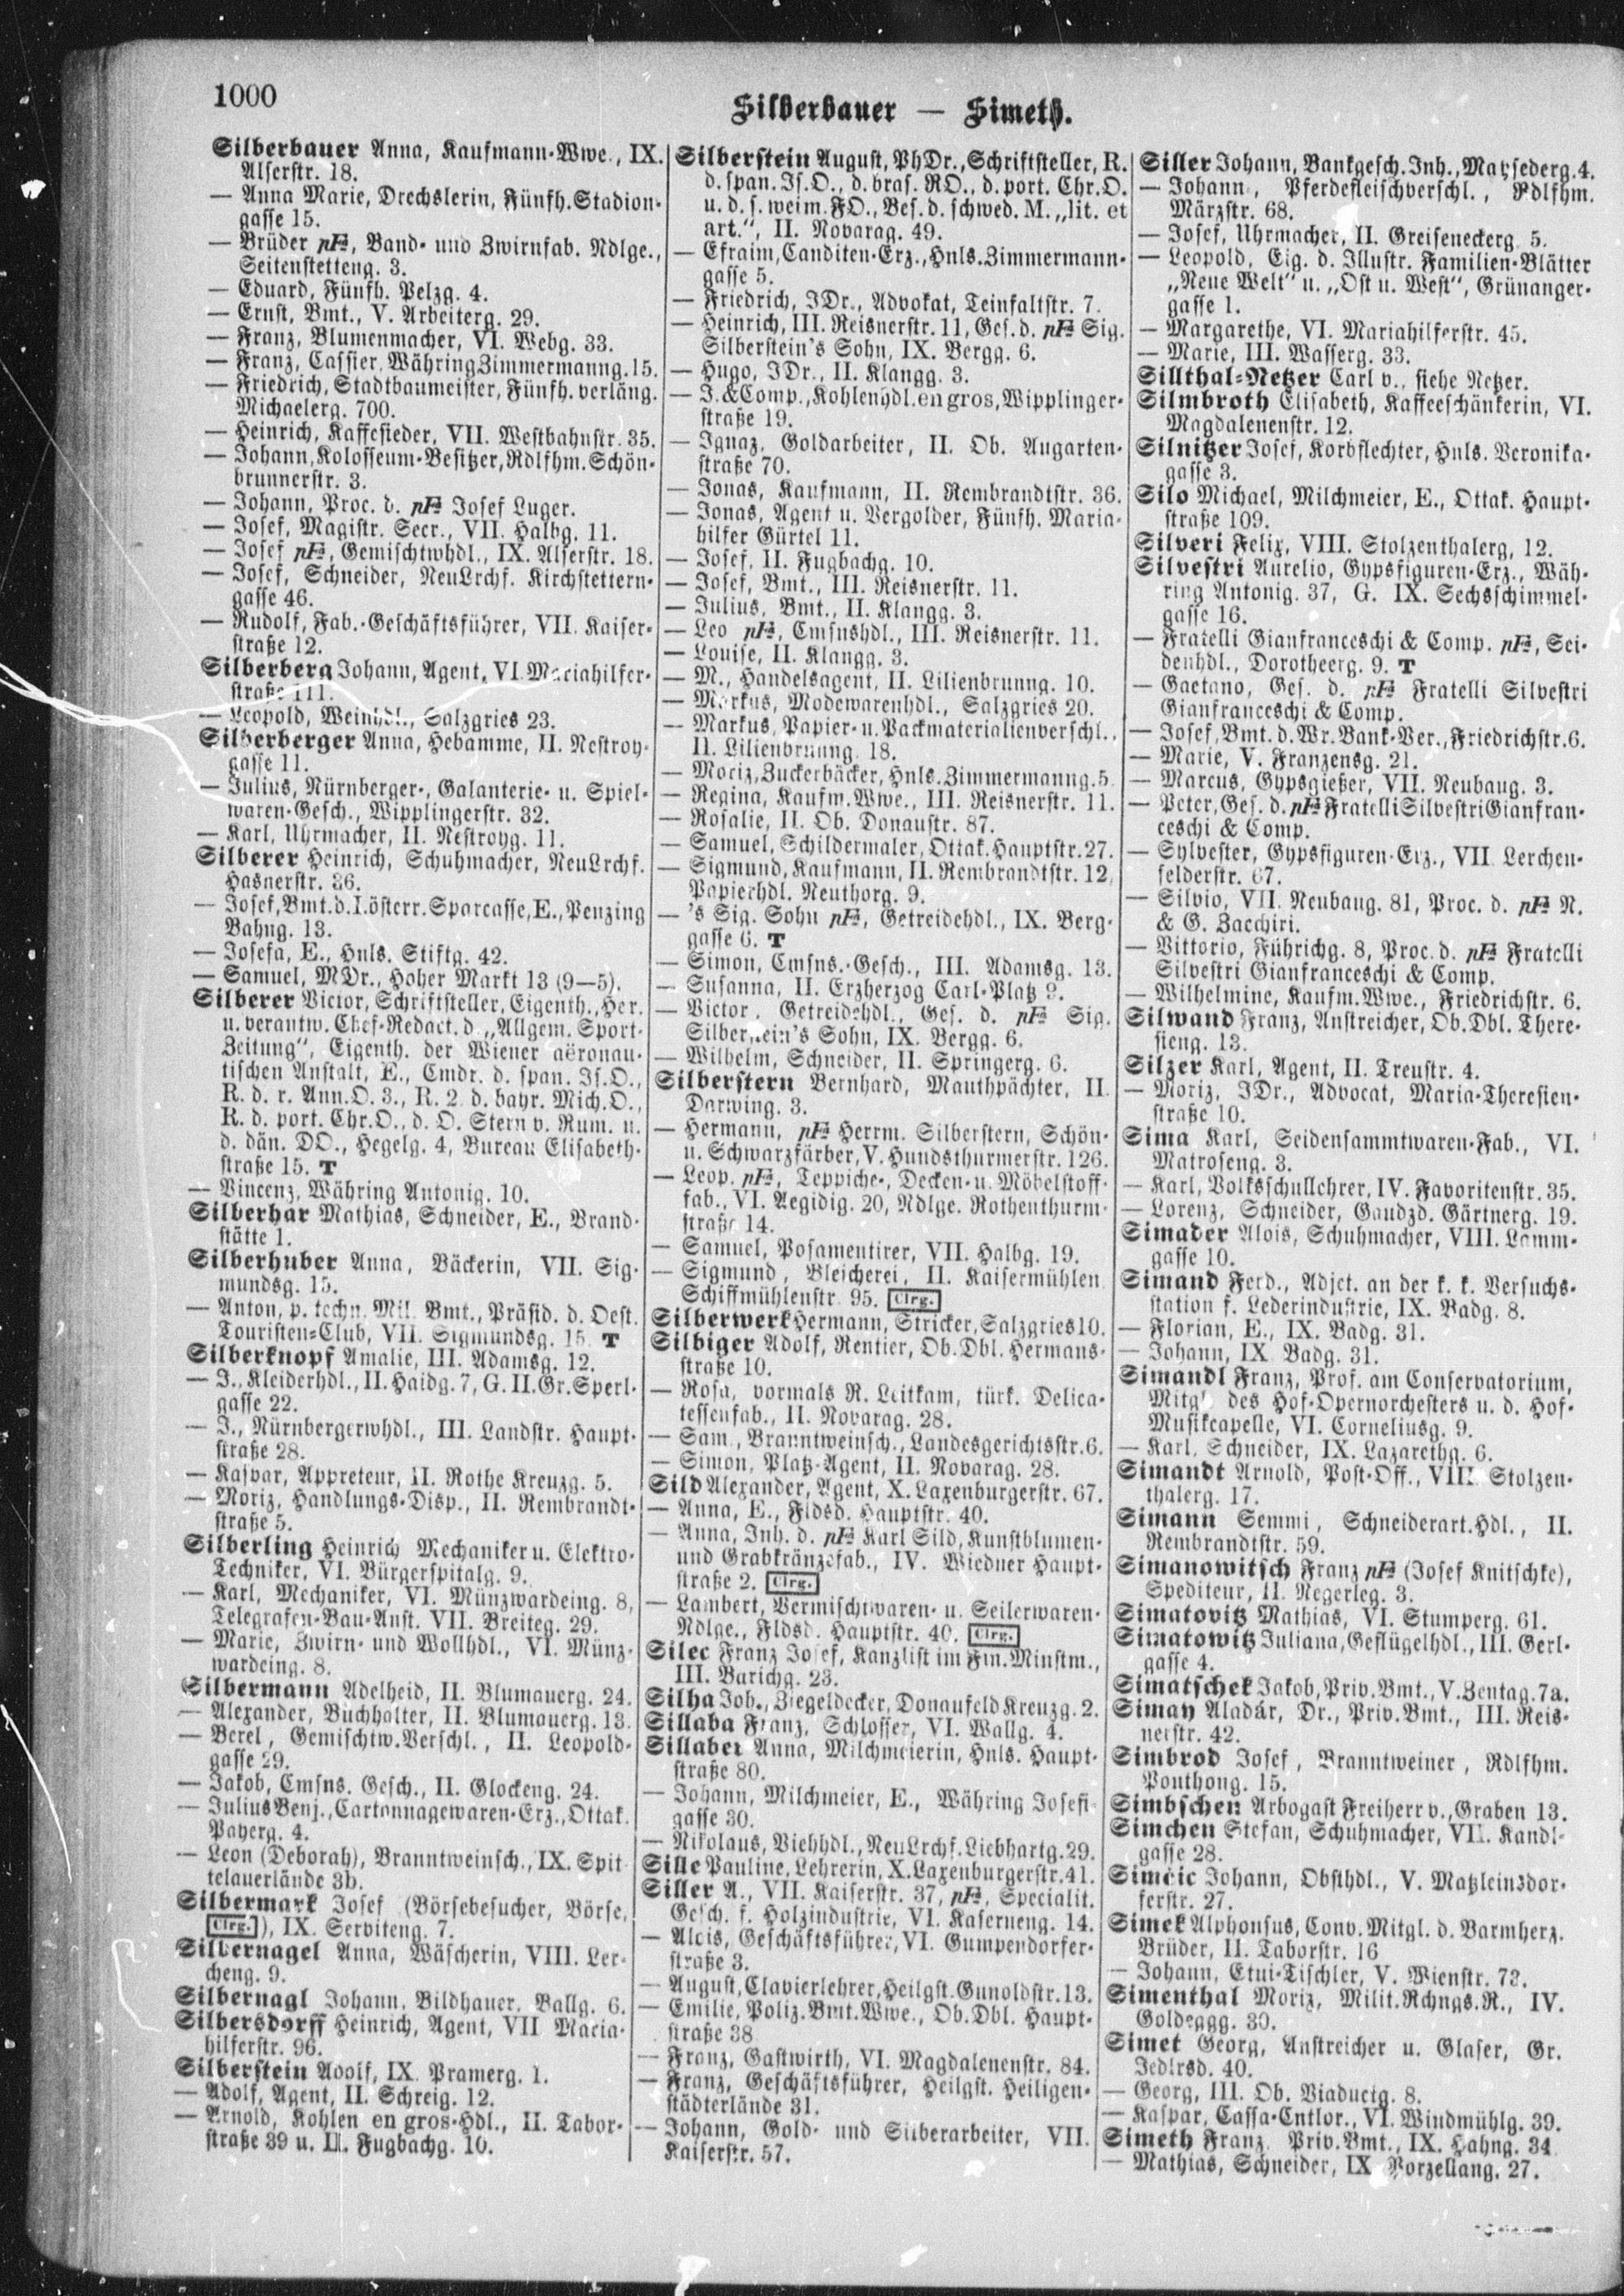 1000
Silberbauer — Simeth.
Silberbauer Anna, Kaufmann-Wwe., IX.
Alserstr. 18.
— Anna Marie, Drechslerin, Fünfh. Stadion-
gasse 15.
— Brüder pFa, Band- und Zwirnfab. Ndlge.,
Seitenstetteng. 3.
— Eduard, Fünfh. Pelzg. 4.
— Ernst, Bmt., V. Arbeiterg. 29.
— Franz, Blumenmacher, VI. Webg. 33.
— Franz, Cassier, Währing Zimmermanng. 15.
— Friedrich, Stadtbaumeister, Fünfh. verläng.
Michaelerg. 700.
— Heinrich, Kaffesieder, VII. Westbahnstr. 35.
— Johann, Kolosseum-Besitzer, Rdlfhm. Schön-
brunnerstr. 3.
— Johann, Proc. d. pFa Josef Luger.
— Josef, Magistr. Secr., VII. Halbg. 11.
— Josef pFa, Gemischtwhdl., IX. Alserstr. 18.
— Josef, Schneider, NeuLrchf. Kirchstettern-
gasse 46.
— Rudolf, Fab.-Geschäftsführer, VII. Kaiser-
straße 12.
Silberberg Johann, Agent, VI. Mariahilfer-
straße 111.
— Leopold, Weinhdl., Salzgries 23.
Silberberger Anna, Hebamme, II. Nestroy-
gasse 11.
— Julius, Nürnberger-, Galanterie- u. Spiel-
waren-Gesch., Wipplingerstr. 32.
— Karl, Uhrmacher, II. Nestroyg. 11.
Silberer Heinrich, Schuhmacher, NeuLrchf.
Hasnerstr. 36.
— Josef, Bmt. d. I. österr. Sparcasse, E., Penzing
Bahng. 13.
— Josefa, E., Hnls. Stiftg. 42.
— Samuel, MDr., Hoher Markt 13 (9—5).
Silberer Victor, Schriftsteller, Eigenth., Her.
u. verantw. Chef-Redact. d. „Allgem. Sport-
Zeitung“, Eigenth. der Wiener aëronau-
tischen Anstalt, E., Cmdr. d. span. Is.O.,
R. d. r. Ann.O. 3., R. 2. d. bayr. Mich.O.,
R. d. port. Chr.O., d. O. Stern v. Rum. u.
d. dän. DO., Hegelg. 4, Bureau Elisabeth-
straße 15. T
— Vincenz, Währing Antonig. 10.
Silberhar Mathias, Schneider, E., Brand-
stätte 1.
Silberhuber Anna, Bäckerin, VII. Sig-
mundsg. 15.
— Anton, p. techn. Mil. Bmt., Präsid. d. Oest.
Touristen-Club, VII. Sigmundsg. 15. T
Silberknopf Amalie, III. Adamsg. 12.
— J., Kleiderhdl., II. Haidg. 7, G. II. Gr. Sperl-
gasse 22.
— J., Nürnbergerwhdl., III. Landstr. Haupt-
straße 28.
— Kaspar, Appreteur, II. Rothe Kreuzg. 5.
— Moriz, Handlungs-Disp., II. Rembrandt-
straße 5.
Silberling Heinrich Mechaniker u. Elektro-
Techniker, VI. Bürgerspitalg. 9.
— Karl, Mechaniker, VI. Münzwardeing. 8,
Telegrafen-Bau-Anst. VII. Breiteg. 29.
— Marie, Zwirn- und Wollhdl., VI. Münz-
wardeing. 8.
Silbermann Adelheid, II. Blumauerg. 24.
— Alexander, Buchhalter, II. Blumauerg. 13.
— Berel, Gemischtw. Verschl., II. Leopold-
gasse 29.
— Jakob, Cmsns. Gesch., II. Glockeng. 24.
— Julius Benj., Cartonnagewaren-Erz., Ottak.
Payerg. 4.
— Leon (Deborah), Branntweinsch., IX. Spit-
telauerlände 3b.
Silbermark Josef (Börsebesucher, Börse,
Clrg.), IX. Serviteng. 7.
Silbernagel Anna, Wäscherin, VIII. Ler-
cheng. 9.
Silbernagl Johann, Bildhauer, Ballg. 6.
Silbersdorff Heinrich, Agent, VII Maria-
hilferstr. 96.
Silberstein Adolf, IX. Pramerg. 1.
— Adolf, Agent, II. Schreig. 12.
— Arnold, Kohlen en gros-Hdl., II. Tabor-
straße 39 u. II. Fugbachg. 10.
Silberstein August, PhDr., Schriftsteller, R.
d. span. Is.O., d. bras. RO., d. port. Chr.O.
u. d. s. weim. FO., Bes. d. schwed. M. „lit. et
art.“, II. Novarag. 49.
— Efraim, Canditen-Erz., Hnls. Zimmermann-
gasse 5.
— Friedrich, JDr., Advokat, Teinfaltstr. 7.
— Heinrich, III. Reisnerstr. 11, Ges. d. pFa Sig.
Silberstein's Sohn, IX. Bergg. 6.
— Hugo, JDr., II. Klangg. 3.
— J. & Comp., Kohlenhdl. en gros, Wipplinger-
straße 19.
— Ignaz, Goldarbeiter, II. Ob. Augarten-
straße 70.
— Jonas, Kaufmann, II. Rembrandtstr. 36.
— Jonas, Agent u. Vergolder, Fünfh. Maria-
hilfer Gürtel 11.
— Josef, II. Fugbachg. 10.
— Josef, Bmt., III. Reisnerstr. 11.
— Julius, Bmt., II. Klangg. 3.
— Leo pFa, Cmsnshdl., III. Reisnerstr. 11.
— Louise, II. Klangg. 3.
— M., Handelsagent, II. Lilienbrunng. 10.
— Markus, Modewarenhdl., Salzgries 20.
— Markus, Papier- u. Packmaterialienverschl.,
II. Lilienbrunng. 18.
— Moriz, Zuckerbäcker, Hnls. Zimmermanng. 5.
— Regina, Kaufm. Wwe., III. Reisnerstr. 11.
— Rosalie, II. Ob. Donaustr. 87.
— Samuel, Schildermaler, Ottak. Hauptstr. 27.
— Sigmund, Kaufmann, II. Rembrandtstr. 12,
Papierhdl. Neuthorg. 9.
— 's Sig. Sohn pFa, Getreidehdl., IX. Berg-
gasse 6. T
— Simon, Cmsns.-Gesch., III. Adamsg. 13.
— Susanna, II. Erzherzog Carl-Platz 9.
— Victor, Getreidehdl., Ges. d. pFa Sig.
Silberstein's Sohn, IX. Bergg. 6.
— Wilhelm, Schneider, II. Springerg. 6.
Silberstern Bernhard, Mauthpächter, II.
Darwing. 3.
— Hermann, pFa Herrm. Silberstern, Schön-
u. Schwarzfärber, V. Hundsthurmerstr. 126.
— Leop. pFa, Teppiche-, Decken- u. Möbelstoff-
fab., VI. Aegidig. 20, Ndlge. Rothenthurm-
straße 14.
— Samuel, Posamentirer, VII. Halbg. 19.
— Sigmund, Bleicherei, II. Kaisermühlen
Schiffmühlenstr. 95. Clrg.
Silberwerk Hermann, Stricker, Salzgries 10.
Silbiger Adolf, Rentier, Ob. Dbl. Hermans-
straße 10.
— Rosa, vormals R. Leitkam, türk. Delica-
tessenfab., II. Novarag. 28.
— Sam., Branntweinsch., Landesgerichtsstr. 6.
— Simon, Platz-Agent, II. Novarag. 28.
Sild Alexander, Agent, X. Laxenburgerstr. 67.
— Anna, E., Fldsd. Hauptstr. 40.
— Anna, Inh. d. pFa Karl Sild, Kunstblumen-
und Grabkränzefab., IV. Wiedner Haupt-
straße 2. Clrg.
— Lambert, Vermischtwaren- u. Seilerwaren-
Ndlge., Fldsd. Hauptstr. 40. Clrg.
Silec Franz Josef, Kanzlist im Fin. Minstm.,
III. Barichg. 23.
Silha Joh., Ziegeldecker, Donaufeld Kreuzg. 2.
Sillaba Franz, Schlosser, VI. Wallg. 4.
Sillaber Anna, Milchmeierin, Hnls. Haupt-
straße 80.
— Johann, Milchmeier, E., Währing Josefi-
gasse 30.
— Nikolaus, Viehhdl., NeuLrchf. Liebhartg. 29.
Sille Pauline, Lehrerin, X. Laxenburgerstr. 41.
Siller A., VII. Kaiserstr. 37, pFa, Specialit.
Gesch. f. Holzindustrie, VI. Kaserneng. 14.
— Alois, Geschäftsführer, VI. Gumpendorfer-
straße 3.
— August, Clavierlehrer, Heilgst. Gunoldstr. 13.
— Emilie, Poliz. Bmt. Wwe., Ob. Dbl. Haupt-
straße 38
— Franz, Gastwirth, VI. Magdalenenstr. 84.
— Franz, Geschäftsführer, Heilgst. Heiligen-
städterlände 31.
— Johann, Gold- und Silberarbeiter, VII.
Kaiserstr. 57.
Siller Johann, Bankgesch. Inh., Maysederg. 4.
— Johann, Pferdefleischverschl., Rdlfhm.
Märzstr. 68.
— Josef, Uhrmacher, II. Greiseneckerg. 5.
— Leopold, Eig. d. Illustr. Familien-Blätter
„Neue Welt“ u. „Ost u. West“, Grünanger-
gasse 1.
— Margarethe, VI. Mariahilferstr. 45.
— Marie, III. Wasserg. 33.
Sillthal-Netzer Carl v., siehe Netzer.
Silmbroth Elisabeth, Kaffeeschänkerin, VI.
Magdalenenstr. 12.
Silnitzer Josef, Korbflechter, Hnls. Veronika-
gasse 3.
Silo Michael, Milchmeier, E., Ottak. Haupt-
straße 109.
Silveri Felix, VIII. Stolzenthalerg. 12.
Silvestri Aurelio, Gypsfiguren-Erz., Wäh-
ring Antonig. 37, G. IX. Sechsschimmel-
gasse 16.
— Fratelli Gianfranceschi & Comp. pFa, Sei-
denhdl., Dorotheerg. 9. T
— Gaetano, Ges. d. pFa Fratelli Silvestri
Gianfranceschi & Comp.
— Josef, Bmt. d. Wr. Bank-Ver., Friedrichstr. 6.
— Marie, V. Franzensg. 21.
— Marcus, Gypsgießer, VII. Neubaug. 3.
— Peter, Ges. d. pFa Fratelli Silvestri Gianfran-
ceschi & Comp.
— Sylvester, Gypsfiguren-Erz., VII Lerchen-
felderstr. 67.
— Silvio, VII. Neubaug. 81, Proc. d. pFa N.
& G. Zacchiri.
— Vittorio, Führichg. 8, Proc. d. pFa Fratelli
Silvestri Gianfranceschi & Comp.
— Wilhelmine, Kaufm. Wwe., Friedrichstr. 6.
Silwand Franz, Anstreicher, Ob. Dbl. There-
sieng. 13.
Silzer Karl, Agent, II. Treustr. 4.
— Moriz, JDr., Advocat, Maria-Theresien-
straße 10.
Sima Karl, Seidensammtwaren-Fab., VI.
Matroseng. 3.
— Karl, Volksschullehrer, IV. Favoritenstr. 35.
— Lorenz, Schneider, Gaudzd. Gärtnerg. 19.
Simader Alois, Schuhmacher, VIII. Lamm-
gasse 10.
Simand Ferd., Adjct. an der k. k. Versuchs-
station f. Lederindustrie, IX. Badg. 8.
— Florian, E., IX. Badg. 31.
— Johann, IX Badg. 31.
Simandl Franz, Prof. am Conservatorium,
Mitgl. des Hof-Opernorchesters u. d. Hof-
Musikcapelle, VI. Corneliusg. 9.
— Karl, Schneider, IX. Lazarethg. 6.
Simandt Arnold, Post-Off., VIII. Stolzen-
thalerg. 17.
Simann Semmi, Schneiderart. Hdl., II.
Rembrandtstr. 59.
Simanowitsch Franz pFa (Josef Knitschke),
Spediteur, II. Negerleg. 3.
Simatovitz Mathias, VI. Stumperg. 61.
Simatowitz Juliana, Geflügelhdl., III. Gerl-
gasse 4.
Simatschek Jakob, Priv. Bmt., V. Zentag. 7a.
Simay Aladár, Dr., Priv. Bmt., III. Reis-
nerstr. 42.
Simbrod Josef, Branntweiner, Rdlfhm.
Ponthong. 15.
Simbschen Arbogast Freiherr v., Graben 13.
Simchen Stefan, Schuhmacher, VII. Kandl-
gasse 28.
Simcic Johann, Obsthdl., V. Matzleinsdor-
ferstr. 27.
Simek Alphonsus, Conv. Mitgl. d. Barmherz.
Brüder, II. Taborstr. 16
— Johann, Etui-Tischler, V. Wienstr. 73.
Simenthal Moriz, Milit. Rchngs. R., IV.
Goldeggg. 30.
Simet Georg, Anstreicher u. Glaser, Gr.
Jedlrsd. 40.
— Georg, III. Ob. Viaductg. 8.
— Kaspar, Cassa-Cntlor., VI. Windmühlg. 39.
Simeth Franz, Priv. Bmt., IX. Hahng. 34
— Mathias, Schneider, IX Porzellang. 27.